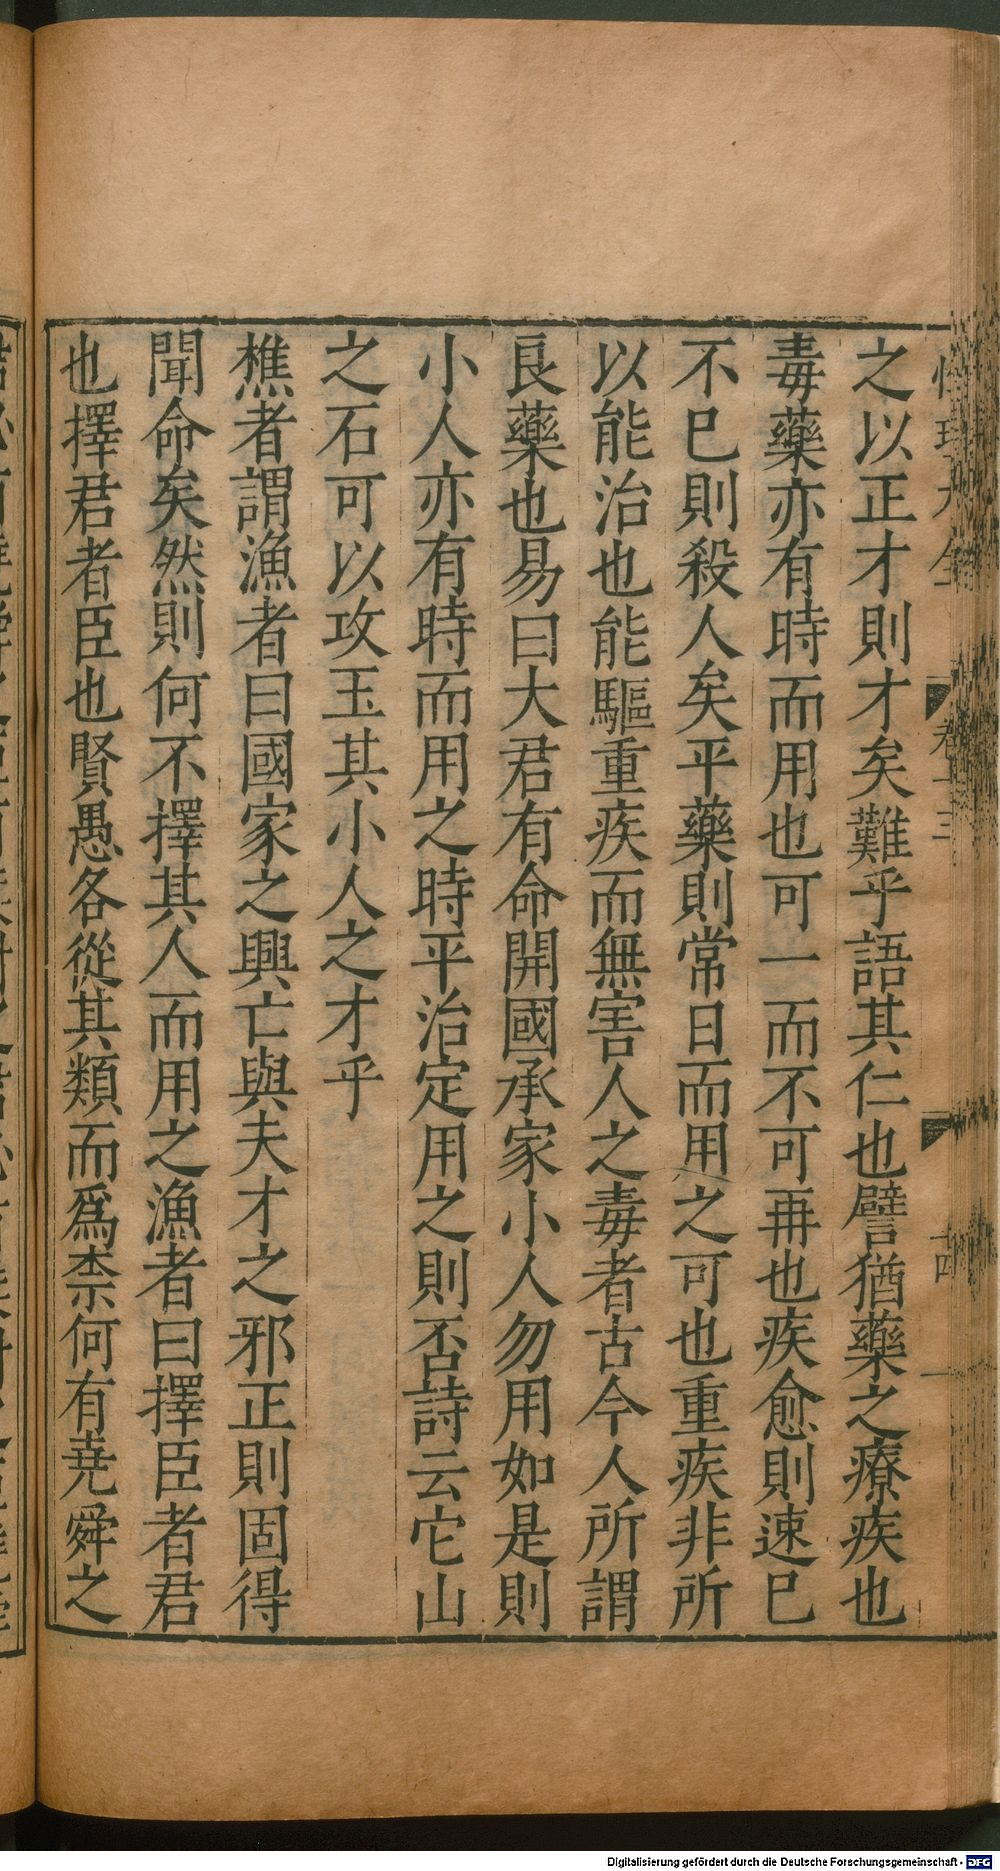 之以正才則才矣難乎語其仁也譬猶藥之療疾也
毒藥亦有時而用也可一而不可再也疾愈則速已
不已則殺人矣平藥則常日而用之可也重疾非所
以能治也能驅重疾而無害人之毒者古今人所謂
良藥也易曰大君有命開國承家小人勿用如是則
小人亦有時而用之時平治定用之則否詩云它山
之石可以攻玉其小人之才乎
樵者謂漁者曰國家之興亡與夫才之邪正則固得
聞命矣然則何不擇其人而用之漁者曰擇臣者君
也擇君者臣也賢愚各從其類而爲柰何有堯舜之
Digitalisierung gefördert durch die Deutsche Forschungsgemeinschaft - DFG